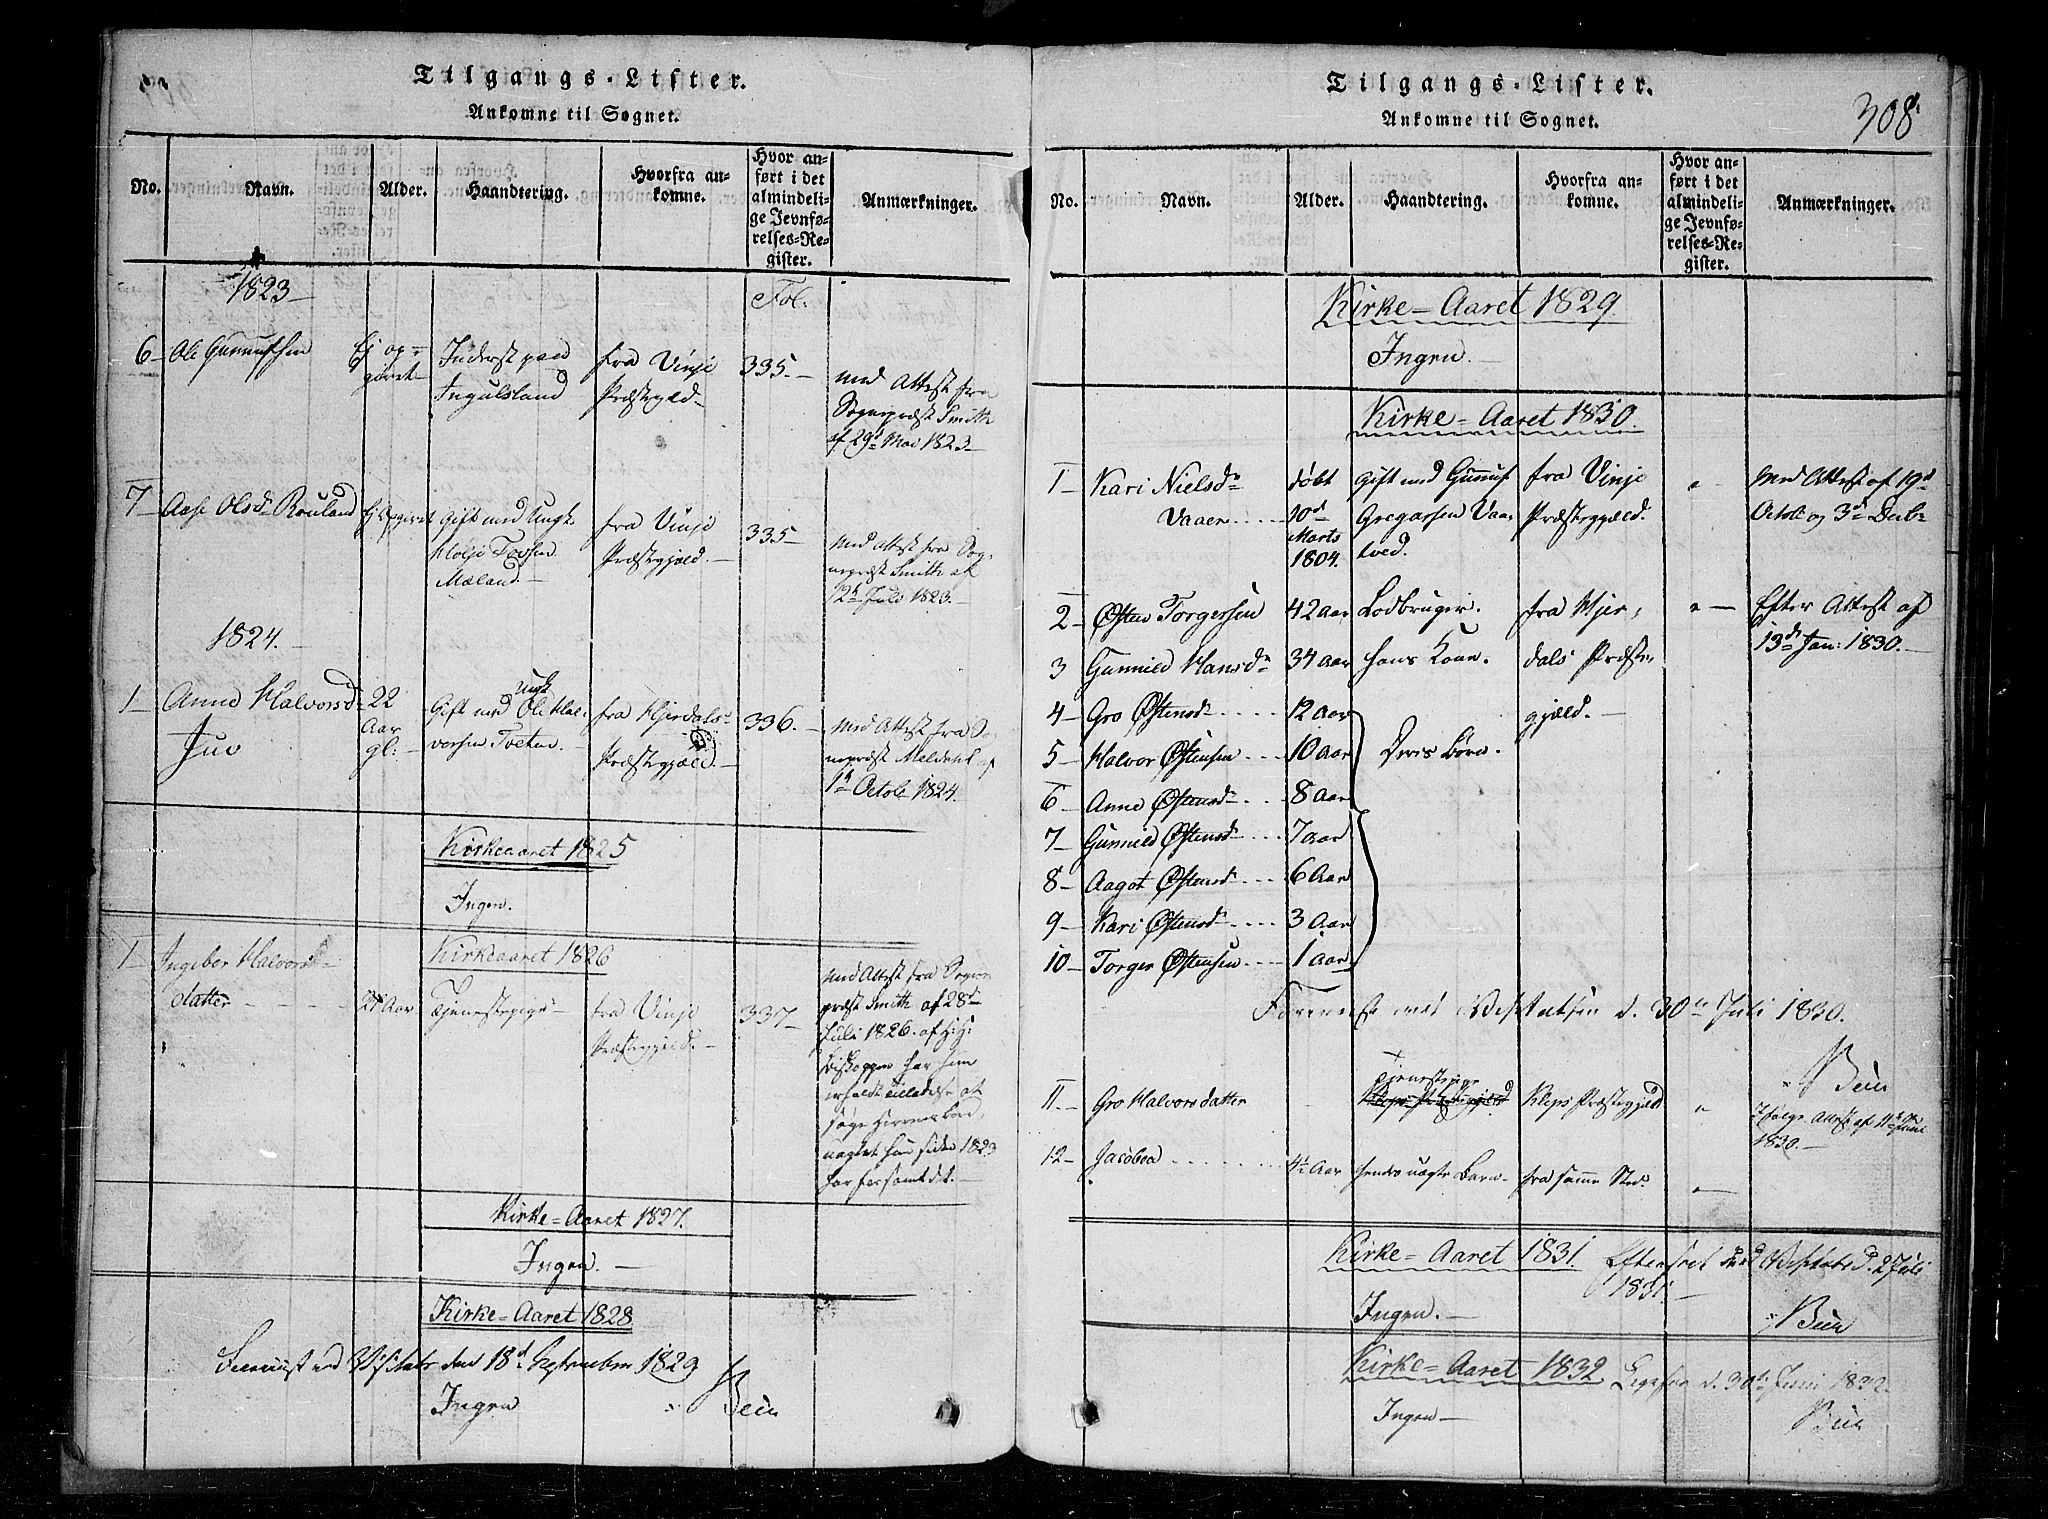 Tilgangs-Lister.
Ankomne til Sognet.
No.
Navn.
Alder.
Haandtering.
Hvorfra an-
komne.
Hvor an-
ført i det
almindeli-
ge Jevnfø-
relses-Re-
gister.
Anmærkninger.
1823
Fol.
6 Ole Gunnufsen
Ej op-
givet
Inderst paa
Ingulsland
fra Vinje
Præstegjeld
335.
Med Attest fra
Sognepræst Smith
af 29d Mai 1823
7 Aase Olsd Rauland
Ej Opgivet
Gift med Ungk.
Mæland.
fra Vinje
Præstegjæld.
335
Med Attest fra Sog-
nepræst Smith af
12te Juli 1823.
1824.
1 Anne Halvorsd
Juv
22
Aar
gl:
Gift med Ungk Ole Hal-
vorsen Tveten.
fra Hjerdals
Præstegjæld.
336.
Med Attest fra So-
gnepræst
1te Octob 1824.
Kirkeaaret 1825
Ingen.
Kirkeaaret 1826
1 Ingebor Halvors-
datter
21 Aar
Tjenestepige
fra Vinje
Præstegjæld.
337
Med Attest fra Sogne-
præst Smith af 28d
Juli 1826. af Hr.
Biskoppen har hun
erholdt Tilladelse at
søge Herrens bord,
uagtet hun siden 1823
har forsømt det.
Kirke-Aaret 1827.
Ingen.
Kirke-Aaret 1828
Fremvist ved Visitats den 18d September 1829
Ingen
Tilgangs-Lister.
Ankomne til Sognet.
308
No.
Navn.
Alder.
Haandtering.
Hvorfra an-
komne.
Hvor an-
ført i det
almindeli-
ge Jevnfø-
relses-Re-
gister.
Anmærkninger.
Kirke-Aaret 1829.
Ingen.
Kirke-Aaret 1830.
1 Kari Nielsdr
Vaaer
døbt
10d
Marts
1804.
Gift med Gunuf
Gregarsen Vaa-
tved.
fra Vinje
Præstegjæld.
Med Attest af 19d
Octob og 3d Decbr
2 Østen Torgersen
42 Aar
Lodbruger.
fra Hjer-
Efter Attest af
13de Jan: 1830.
3 Gunnild Hansdr
34 Aar
hans Kone.
dals Præste-
4 Gro Østensd
12 Aar
gjæld.
5 Halvor Østensen
10 Aar
Deris Børn.
6 Anne Østensd
8 Aar
7 Gunnild Østensd
7 Aar
8 Aagot Østensd
6 Aar
9 Kari Østensd
3 Aar
10 Torger Østensen
1 Aar
Forevist ved Visitatsen d. 30te Juli 1830.
11. Gro Halvorsdatter
Tjenestepige
Kleps Præstegjæld
Ifølge Attest af 11te
1830.
12 Jacobea
4½ Aar
hendes uægte Barn
fra samme Sted
Kirke-Aaret 1831.
Efterseet ved Visitats d. 2 Juli
1831.
Ingen.
Kirke-Aaret 1832
d. 30te Juni 1832.
Ingen